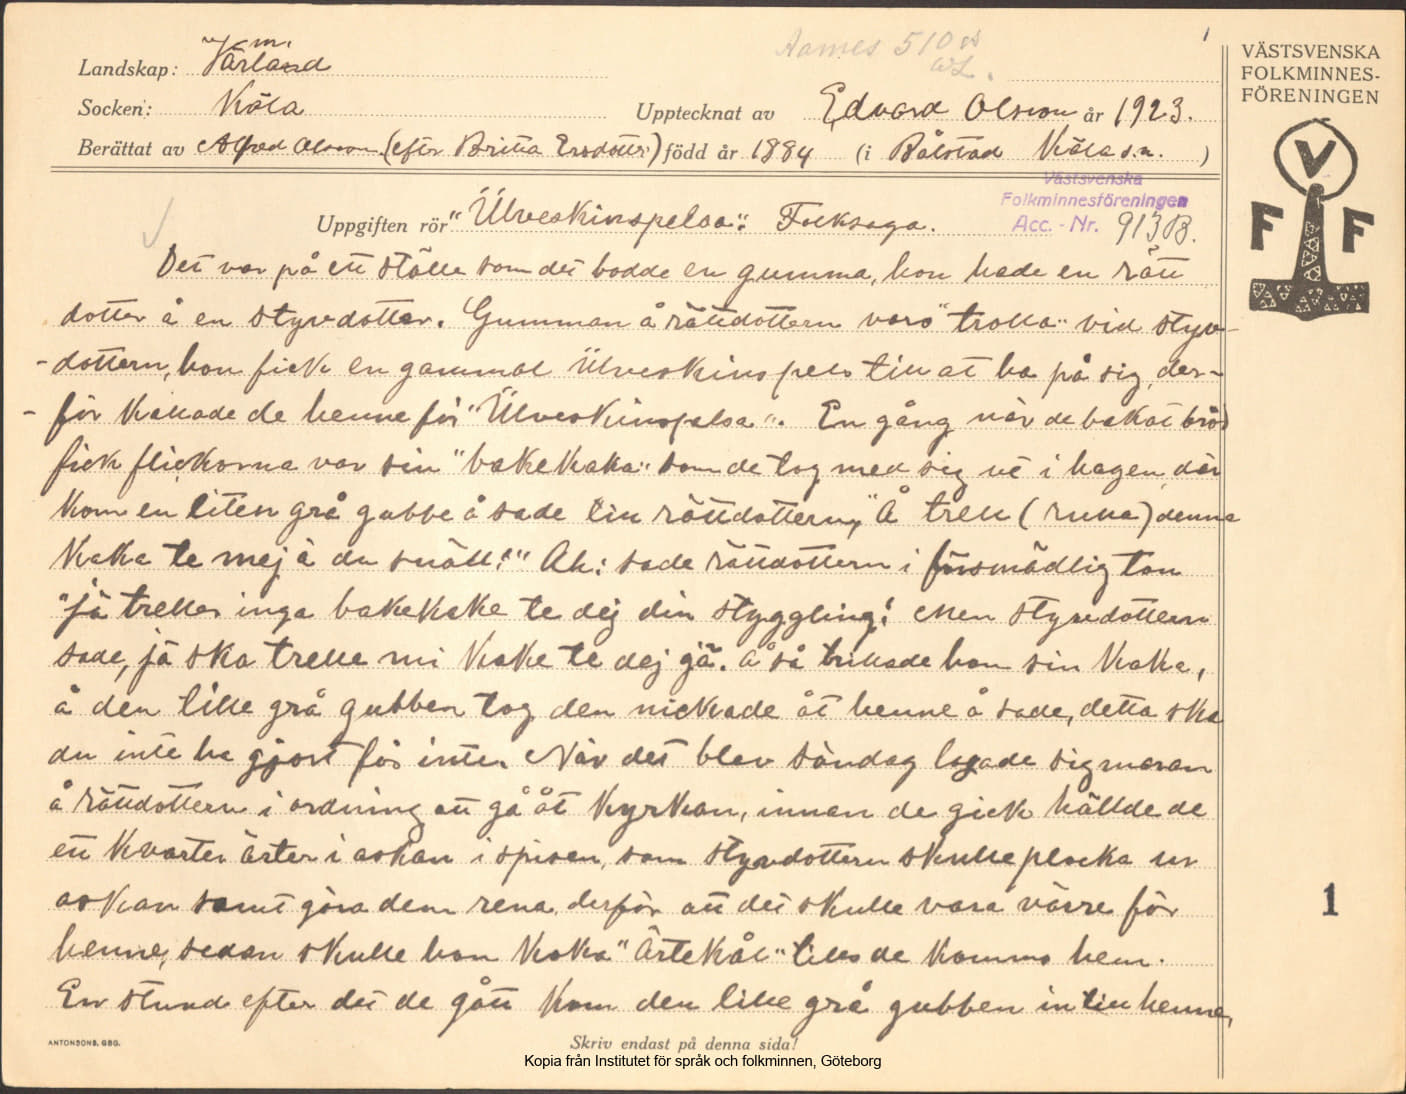 Aarnes 510 A
1
VÄSTSVENSKA
FOLKMINNES-
FÖRENINGEN
Landskap: Värmland
Socken: Köla
Upptecknat av Edvard Olsson år 1923.
Berättat av Alfred Olsson (efter Britta Ersdotter) född år 1884 (i Bålstad Köla s.n. )
Västsvenska
Folkminnesföreningen
Acc. - Nr. 913 B.
V
F F
Uppgiften rör "Ülveskinspelsa". Folksaga.
Det var på ett ställe som det bodde en gumma, hon hade en rätt
dotter å en styvdotter. Gumman å rättdottern voro "trolla" vid styv-
-dottern, hon fick en gammal Ülveskinspels till at ha på sig, der-
-för kallade de henne för "Ülveskinspelsa". En gång när de bakat bröd
fick flickorna var sin "bakekaka" som de tog med sig ut i hagen, där
kom en liten grå gubbe å sade till rättdottern, "Å trell (rulla) denna
kaka te mej å du snäll!" Ah: sade rättdottern i försmädlig ton
"jä treller inga bakekake te dej din styggling! Men styvdottern
sade, jä ska trelle mi kake te dej jä. Å så trillade hon sin kaka,
å den lille grå gubben tog den nickade åt henne å sade, detta ska
du inte ha gjort för inte. När det blev söndag lagade sig moran
å rättdottern i ordning att gå åt kyrkan, innan de gick hällde de
ett kvarter ärter i askan i spisen, som styvdottern skulle plocka ur
askan samt göra dem rena, derför att det skulle vara värre för
henne, sedan skulle hon koka "Ärtekål" tills de kommo hem.
En stund efter det de gått kom den lille grå gubben in till henne,
1
ANTONSONS, GBG.
Skriv endast på denna sida!
Kopia från Institutet för språk och folkminnen, Göteborg